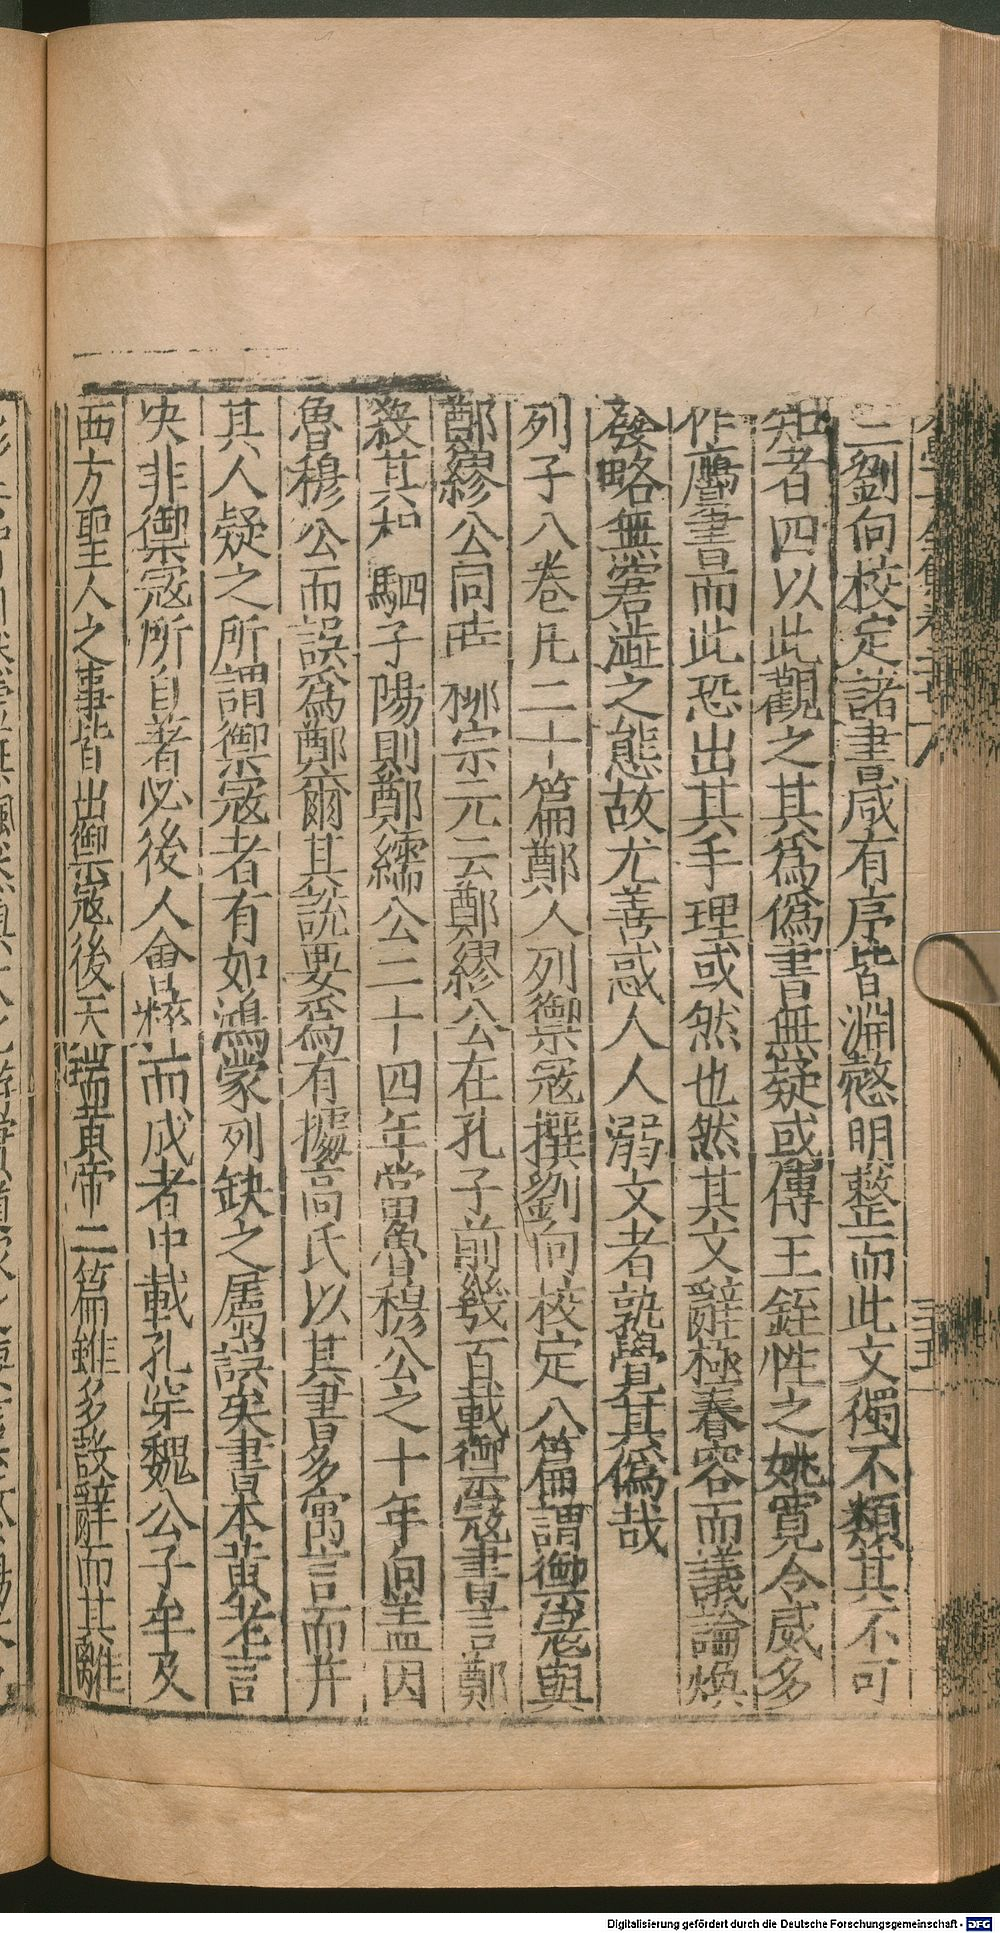 三劉向校定諸書咸有序皆淵慤明整而此文獨不類其不可
知者四以此觀之其爲僞書無疑或傳王銍性之姚寬令威多
作贗書而此恐出其手理或然也然其文辭極舂容而議論煥
發略無窘澁之態故尤善惑人人溺文者孰覺其僞哉
列子八卷凡二十篇鄭人列禦寇撰劉向校定八篇謂禦寇與
鄭繆公同時柳宗元云鄭繆公在孔子前幾百載禦寇書言鄭
殺其相駟子陽則鄭繻公二十四年當魯穆公之十年向蓋因
魯穆公而誤爲鄭爾其說要爲有據高氏以其書多寓言而并
其人疑之所謂禦寇者有如鴻蒙列缺之屬誤矣書本黃老言
決非禦寇所自著必後人會粹而成者中載孔穿魏公子牟及
西方聖人之事皆出禦寇後天瑞黃帝二篇雖多設辭而其離
三五
Digitalisierung gefördert durch die Deutsche Forschungsgemeinschaft - DFG